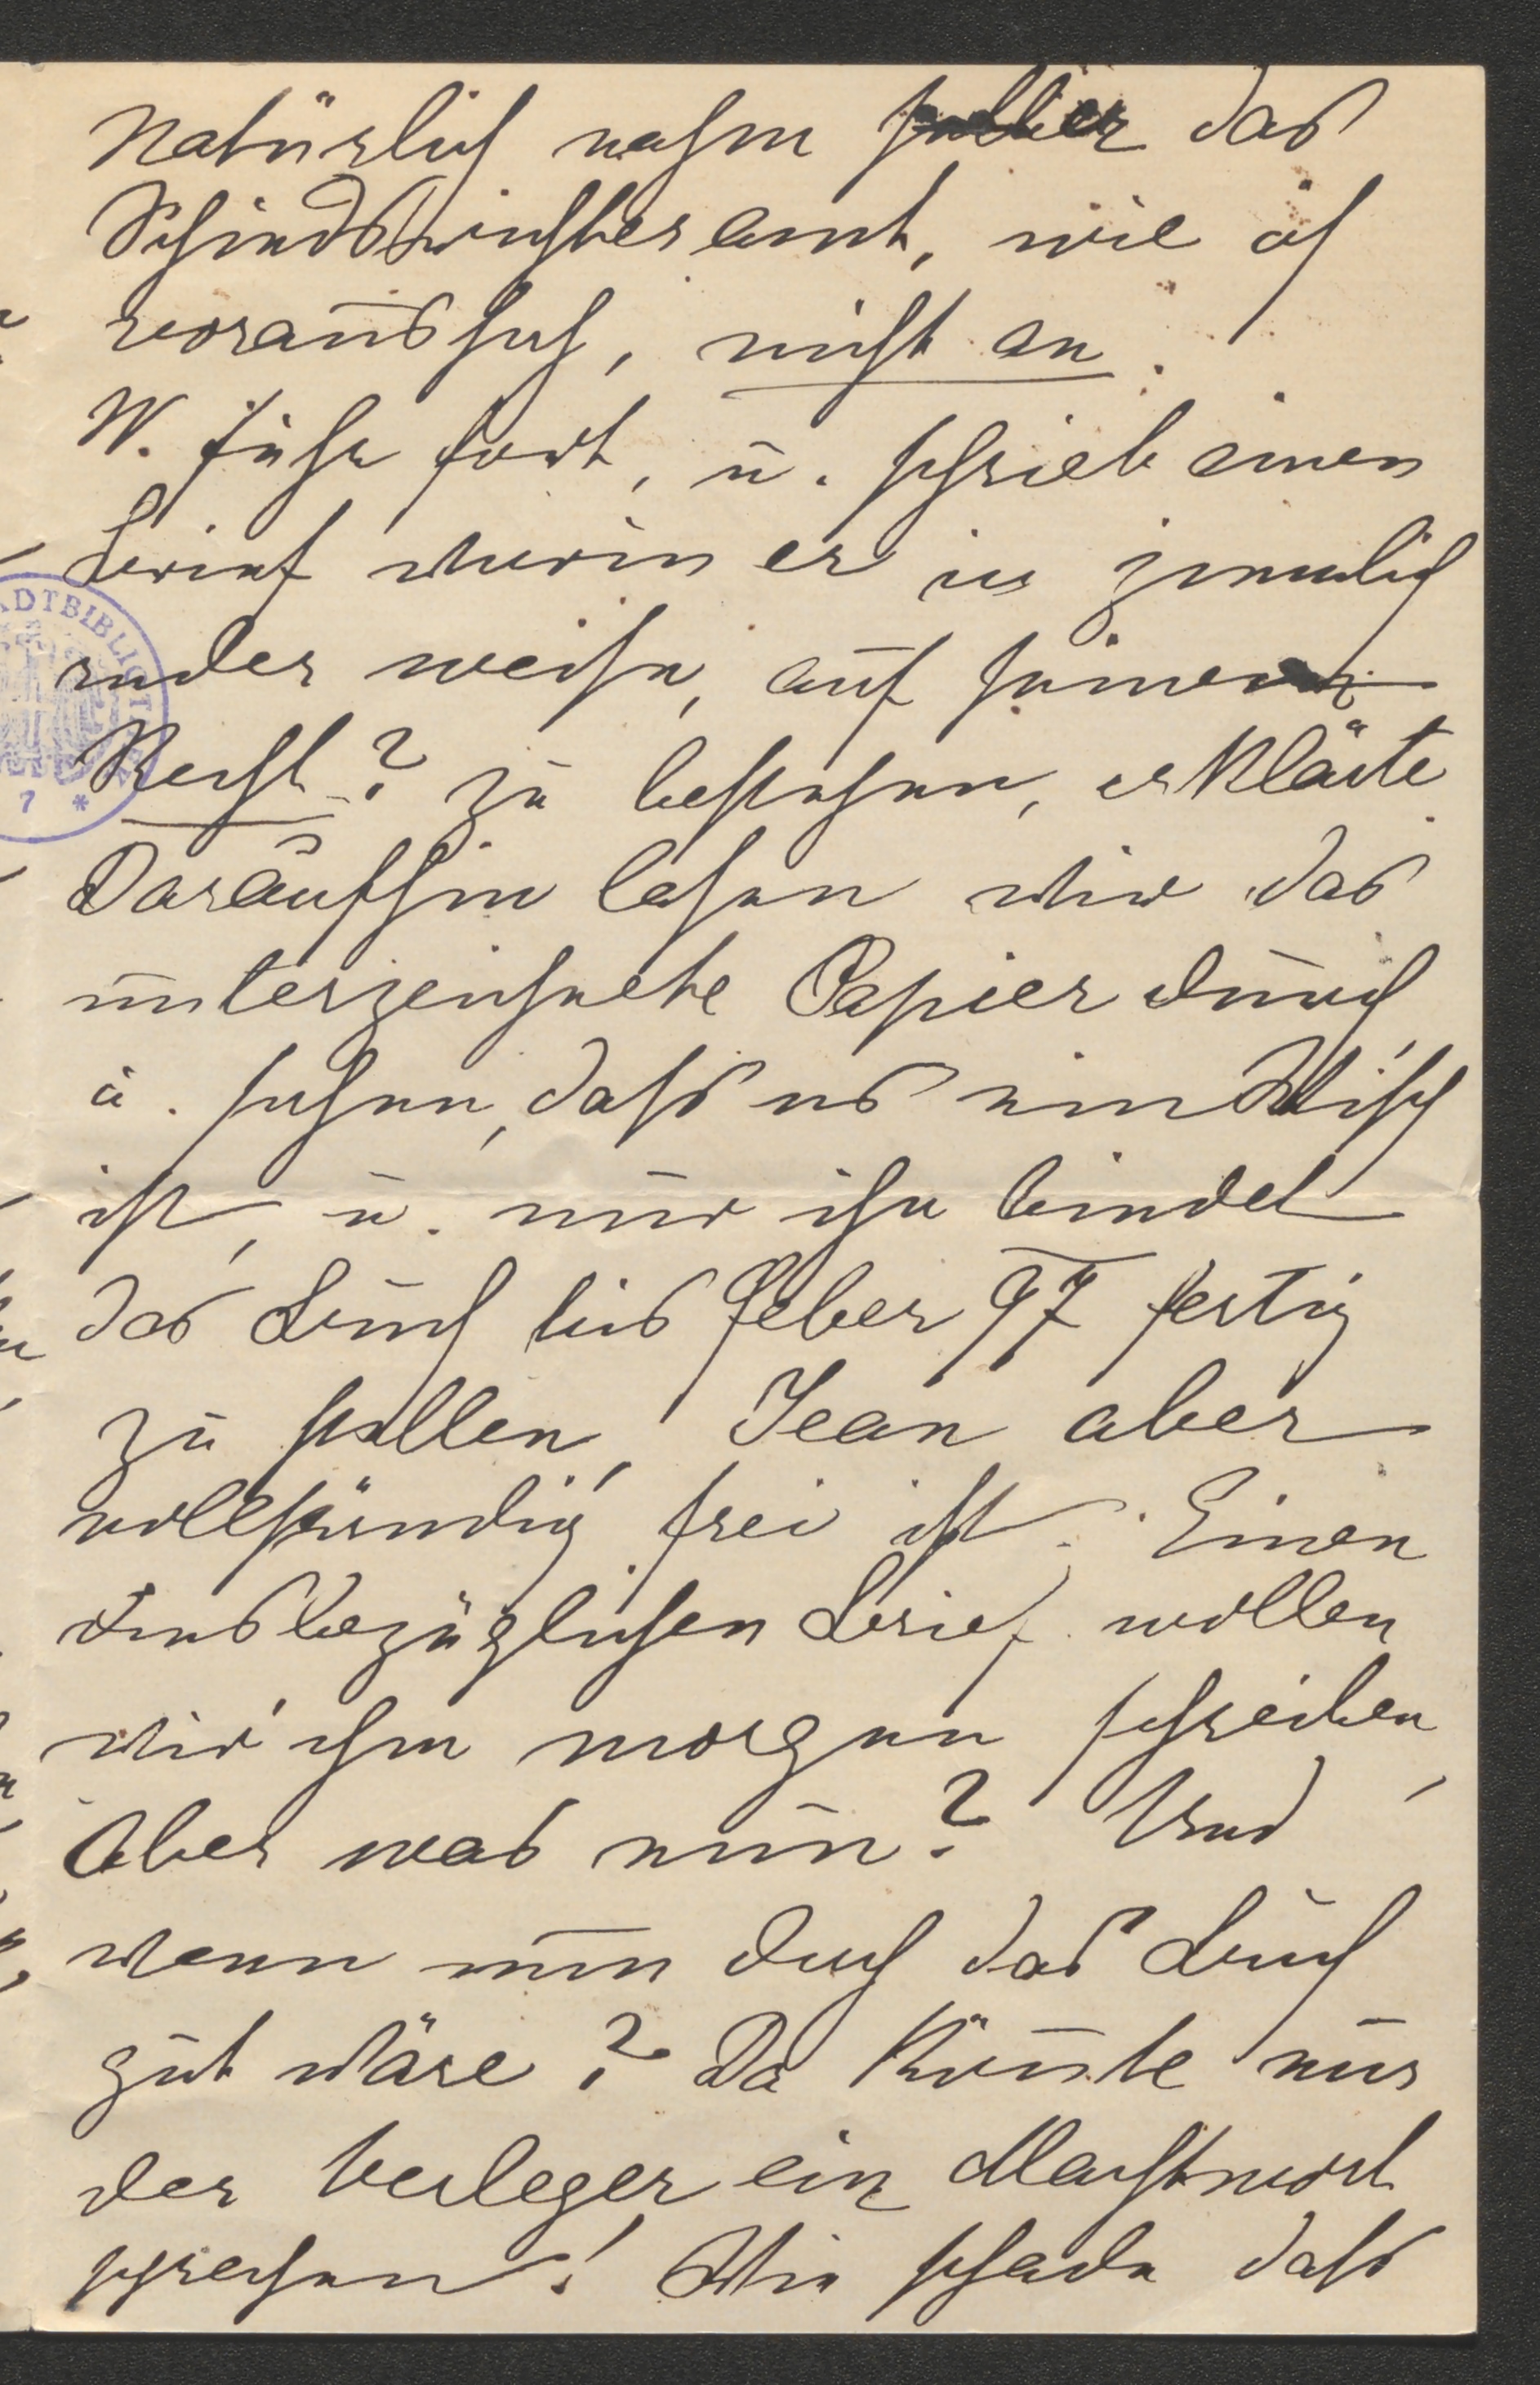 Natürlich nahm selber das
Schiedsrichteramt, wie ich
voraussah, nicht an.
W. fuhr fort, u. schrieb einen
Brief worin er in ziemlich
roder weise, auf seinem
Recht? zu bestehen, erklärte.
Daraufhin lasen wir das
unterzeichnete Papier durch,
u. sehen, dass es ein Wisch
ist, u. nur ihn bindet
das Buch bis Feber 97 fertig
zu stellen, Jean aber
vollständig frei ist. Einen
diesbezüglichen Brief wollen
wir ihm morgen schreiben,
Aber was nun? Und
wenn nun doch das Buch
gut wäre? Da könnte nur
der Verleger ein Machtwort
sprechen! Wie schade dass
STADTBIBLIOT
7 *